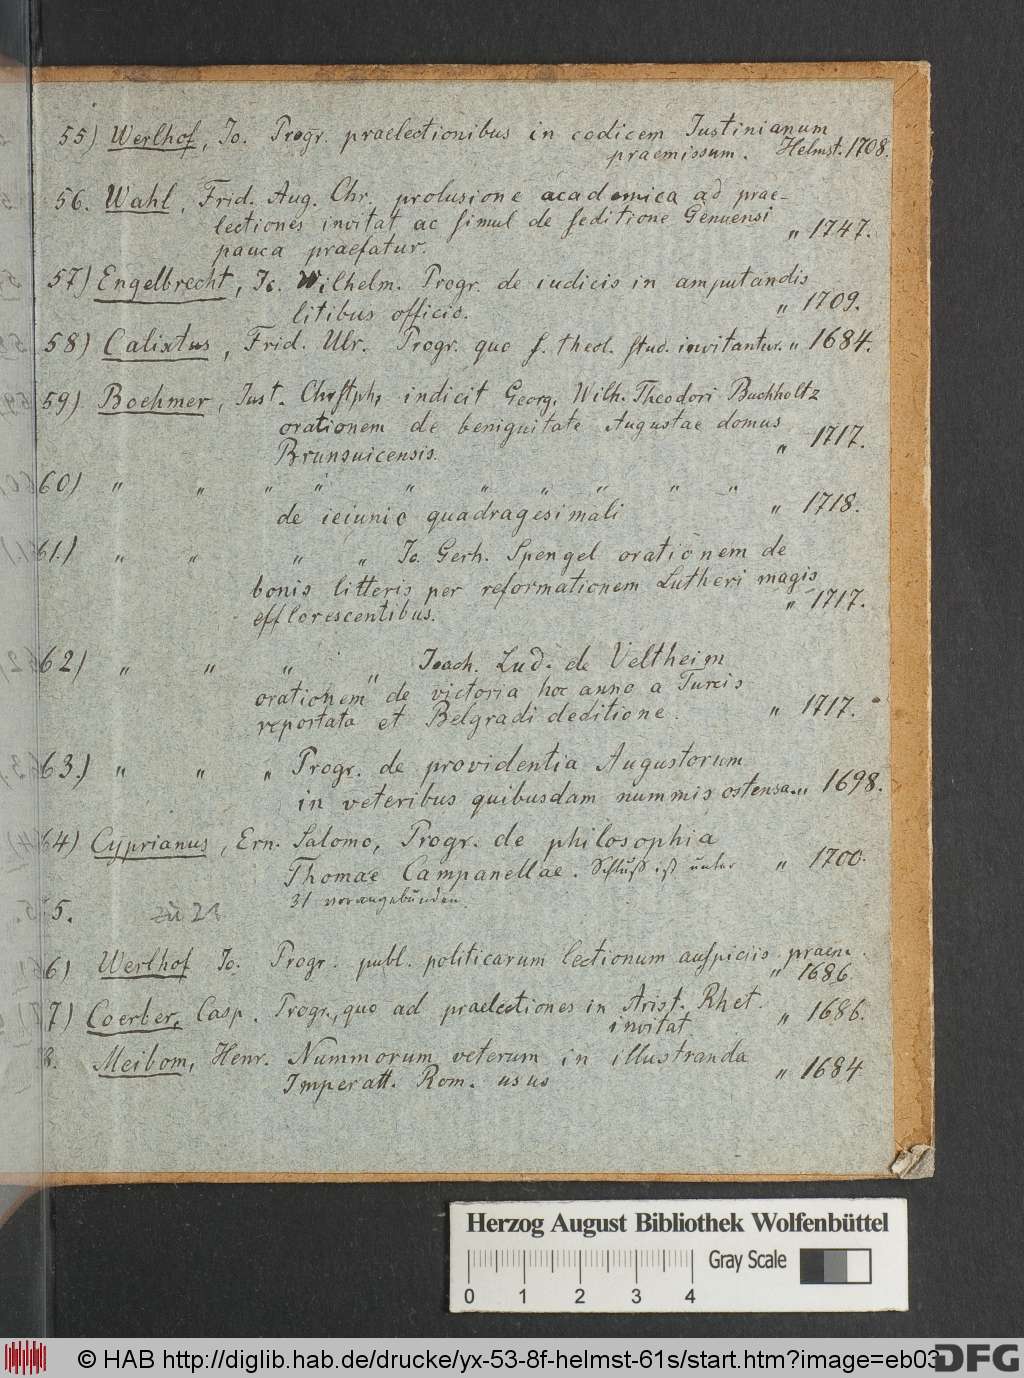 55) Werlhof, Io. Progr. praelectionibus in codicem Iustinianum
praemissum. Helmst. 1708.
56. Wahl, Frid. Aug. Chr. prolusione academica ad prae-
lectiones invitat ac simul de seditione Genuensi
pauca praefatur. " 1747.
57) Engelbrecht, Io. Wilhelm. Progr. de iudicis in amputandis
litibus officio. " 1709.
58) Calixtus, Frid. Ulr. Progr. quo s. theol. stud. invitantur. " 1684.
59) Boehmer, Iust. Chrstph. indicit Georg. Wilh. Theodori Buchholtz
orationem de benignitate Augustae domus
Brunsuicensis. " 1717.
60) " " " " " " " " " "
de ieiunio quadragesimali " 1718.
61.) " " " " Io. Gerh. Spengel orationem de
bonis litteris per reformationem Lutheri magis
efflorescentibus. " 1717.
62) " " " " Ioach. Lud. de Veltheim
orationem de victoria hoc anno a Turcis
reportata et Belgradi deditione. " 1717.
63.) " " " Progr. de providentia Augustorum
in veteribus quibusdam nummis ostensa. " 1698.
64) Cyprianus, Ern. Salomo, Progr. de philosophia
Thomae Campanellae. Schluß ist unter " 1700.
31 vorangebunden.
5. zu 23
6) Werlhof Io. Progr. publ. politicarum lectionum auspiciis praem.
" 1686.
7) Coerber, Casp. Progr., quo ad praelectiones in Arist. Rhet.
invitat " 1686.
8. Meibom, Henr. Nummorum veterum in illustranda
Imperatt. Rom. usus " 1684
Herzog August Bibliothek Wolfenbüttel
Gray Scale
0 1 2 3 4
© HAB http://diglib.hab.de/drucke/yx-53-8f-helmst-61s/start.htm?image=eb03
DFG